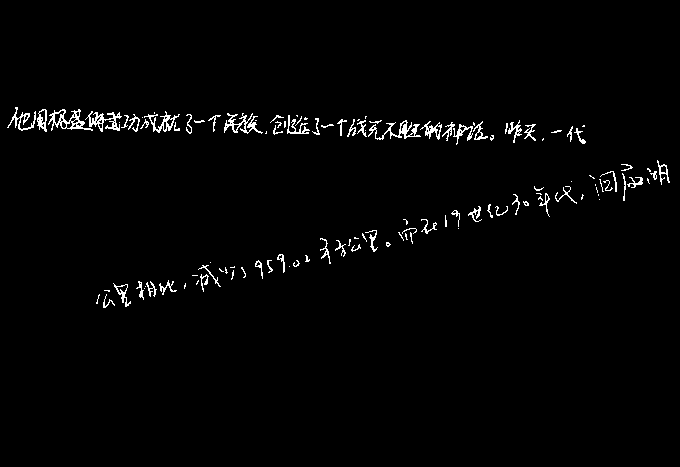 他用极盛的武功成就了一个民族,创造了一个战无不胜的神话。昨天,一代
公里相比,减少了959.02平方公里。而在19世纪30年代,洞庭湖